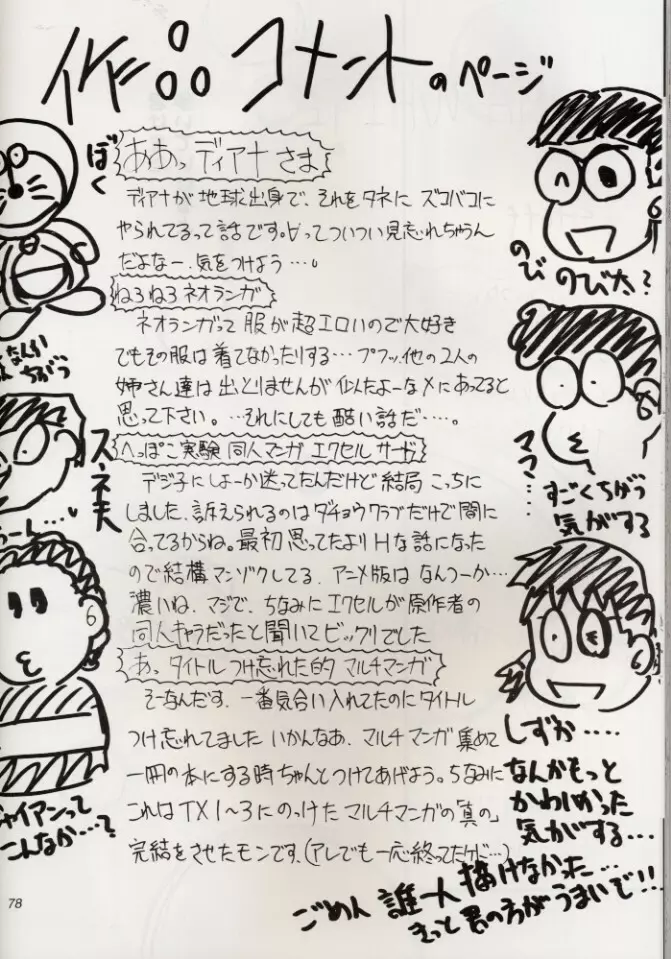 作品コメントのページ
ああっディアナさま
ディアナが地球出身で、それをタネにズコバコに
やられてるって話です。∀ってついつい見忘れちゃうん
だよなー、気をつけよう…。
ねろねろネオランガ
ネオランガって服が超エロいので大好き
でもその服は着てなかったりする…プフッ、他の2人の
姉さん達は出とりませんが似たよーなメにあってると
思って下さい。…それにしても酷い話だ…。
へっぽこ実験同人マンガ エクセルサード
デジ子にしよーか迷ってたんだけど結局こっちに
しました、訴えられるのはダチョウクラブだけで間に
合ってるからね。最初思ってたよりHな話になった
ので結構マンゾクしてる、アニメ版はなんつーか…
濃いね、マジで、ちなみにエクセルが原作者の
同人キャラだったと聞いてビックリでした
あ、タイトルつけ忘れた的マルチマンガ
そーなんだす、一番気合い入れてたのにタイトル
つけ忘れてました いかんなあ、マルチマンガ集めて
一冊の本にする時ちゃんとつけてあげよう。ちなみに
これはTX1〜3にのっけたマルチマンガの「真の」
完結をさせたモンです。(アレでも一応終ってたけど…)
ぼく
なんか
ちがう
スネ夫
うーん…
ジャイアンって
こんなか…?
のび のび太?
ママ…
すごくちがう
気がする
しずか…
なんかもっと
かわいかった
気がする…
ごめん 誰一人描けなかった…
きっと君の方がうまいで!!
78